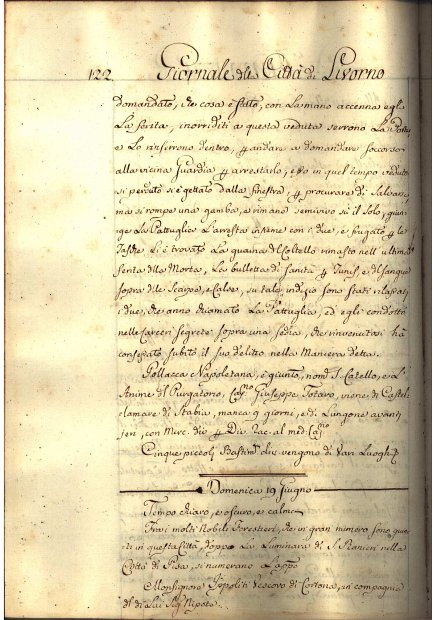 122 Giornale della Città di Livorno
domandato, che cosa è stato, con la mano accenna egli
La ferita, inorriditi a questa veduta serrono La Porta
e Lo rinserrono dentro, p andare a domandare soccorso
alla vicina Guardia p arrestarlo, esso in quel tempo vedutosi
si perduto si è gettato dalla finestra, p procurare di salvarsi,
ma si rompe una gamba, e rimane semivivo sù il solo, giun-
ge La Pattuglia L'arresta insieme con i due, e frugato p le
Tasche Li è trovato La guaina del Coltello rimasto nell'ultima
ferita della Morta, La bulletta di sanità p Tunis e del sangue
sopra alle Scarpe, e Calse, su tale indizio sono stati rilasciati
i due, che anno chiamato La Pattuglia, ed egli condotto
nelle Carceri segrete sopra una sedia, che rinvenutosi hà
confessato subito il suo delitto nella Maniera detta.
Pollacca Napoletana, è giunto, nomta S. Catello, e L'
Anime del Purgatorio, Capno Giuseppe Totaro, viene di Castell
a mare di Stabia, manca 9 giorni, e di Longone avanti
jeri, con Merc. div p Div. Rac. al med. Capno
Cinque piccoli Bastimti che vengono di Vari Luoghi
Domenica 19 Giugno
Tempo chiaro, e oscuro, e calmo
Fra i molti Nobili Forestieri, che in gran numero sono giun-
ti in questa Città, doppo La Luminara di S. Ranieri nella
Città di Pisa, si numerano L'appo
Monsignore Ippoliti Vescovo di Cortona, in compagnia
del di Lui Sig Nipote.